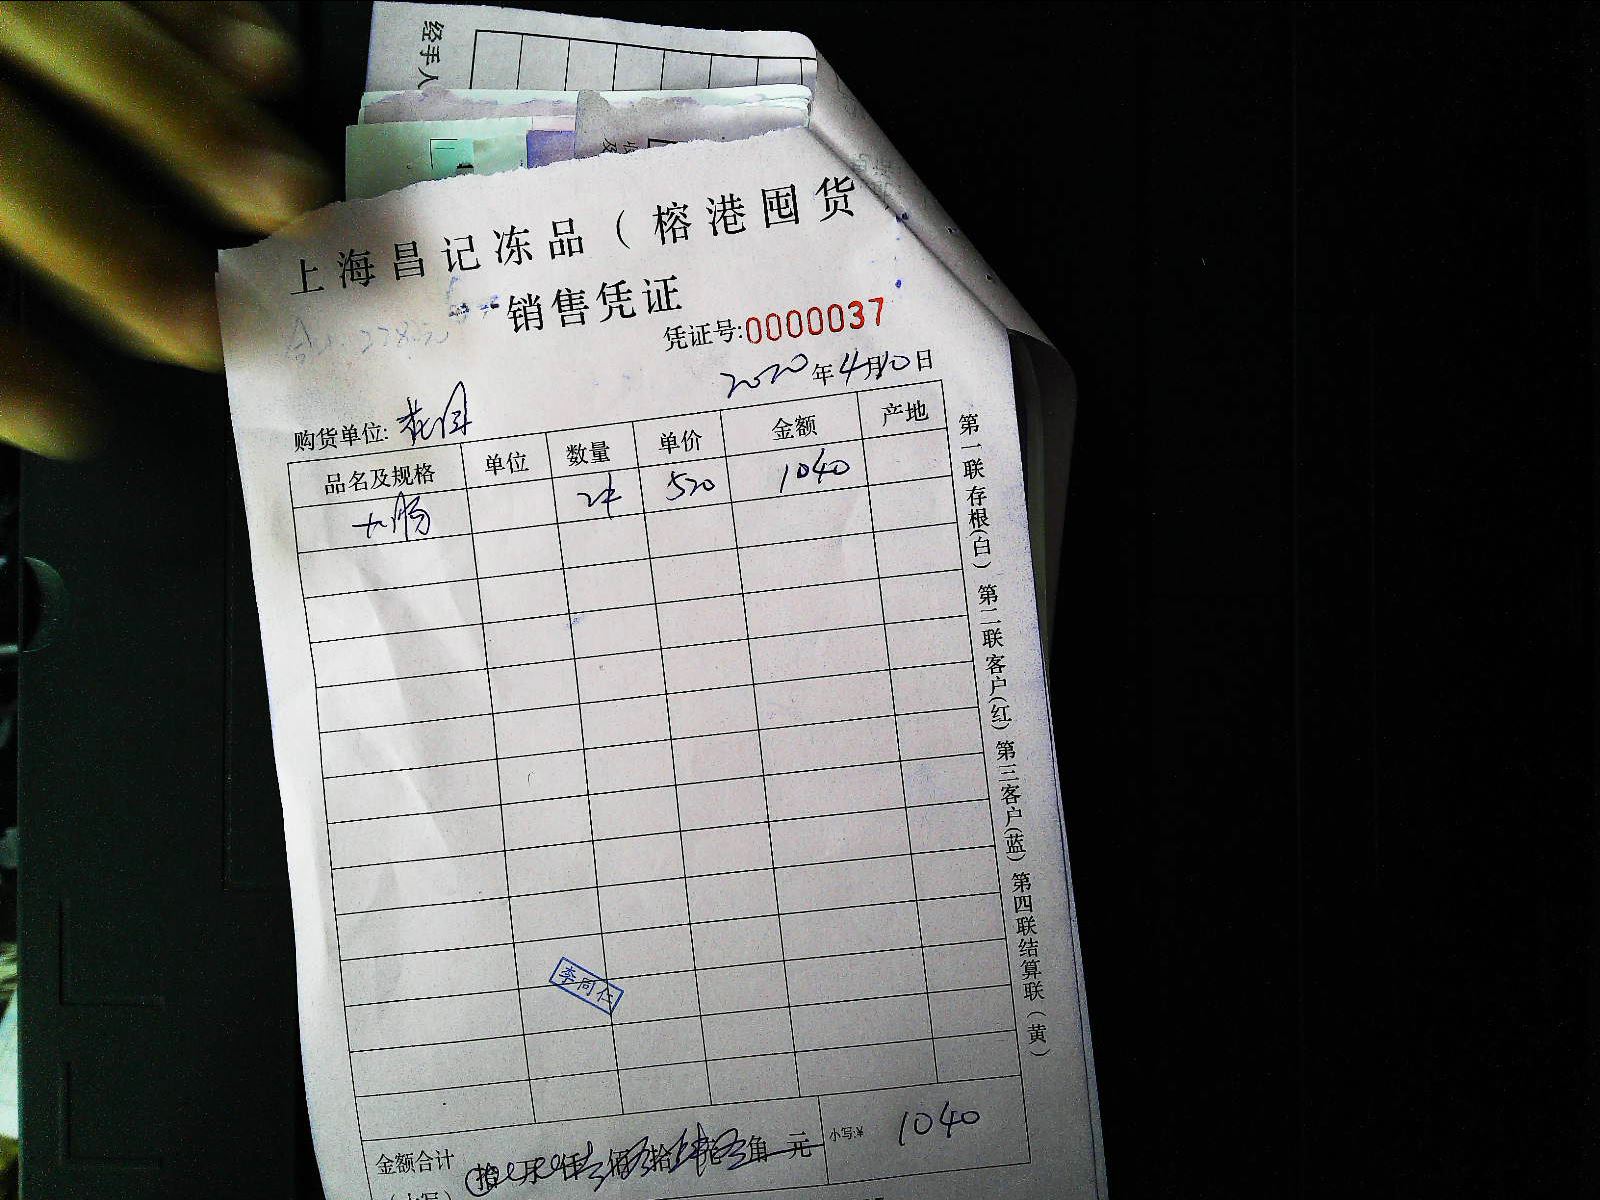 经手人
上海昌记冻品（榕港囤货
销售凭证
凭证号:0000037
2020年4月10日
购货单位:
品名及规格 单位 数量 单价 金额 产地
大肠 2件 520 1040
第一联存根(白) 第二联客户(红) 第三客户(蓝) 第四联结算联(黄)
李同仁
金额合计 拾 万 仟 佰 拾 角 元 小写:¥ 1040
(大写)